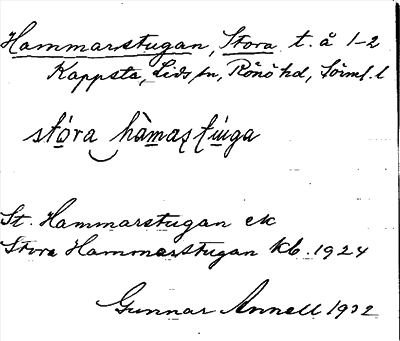 Hammarstugan, Stora t. å 1-2
Kappsta, Lids sn, Rönö hd, Sörml. l
stóra hàmastúga
St. Hammarstugan ek
Stora Hammarstugan kb. 1924
Gunnar Annell 1932